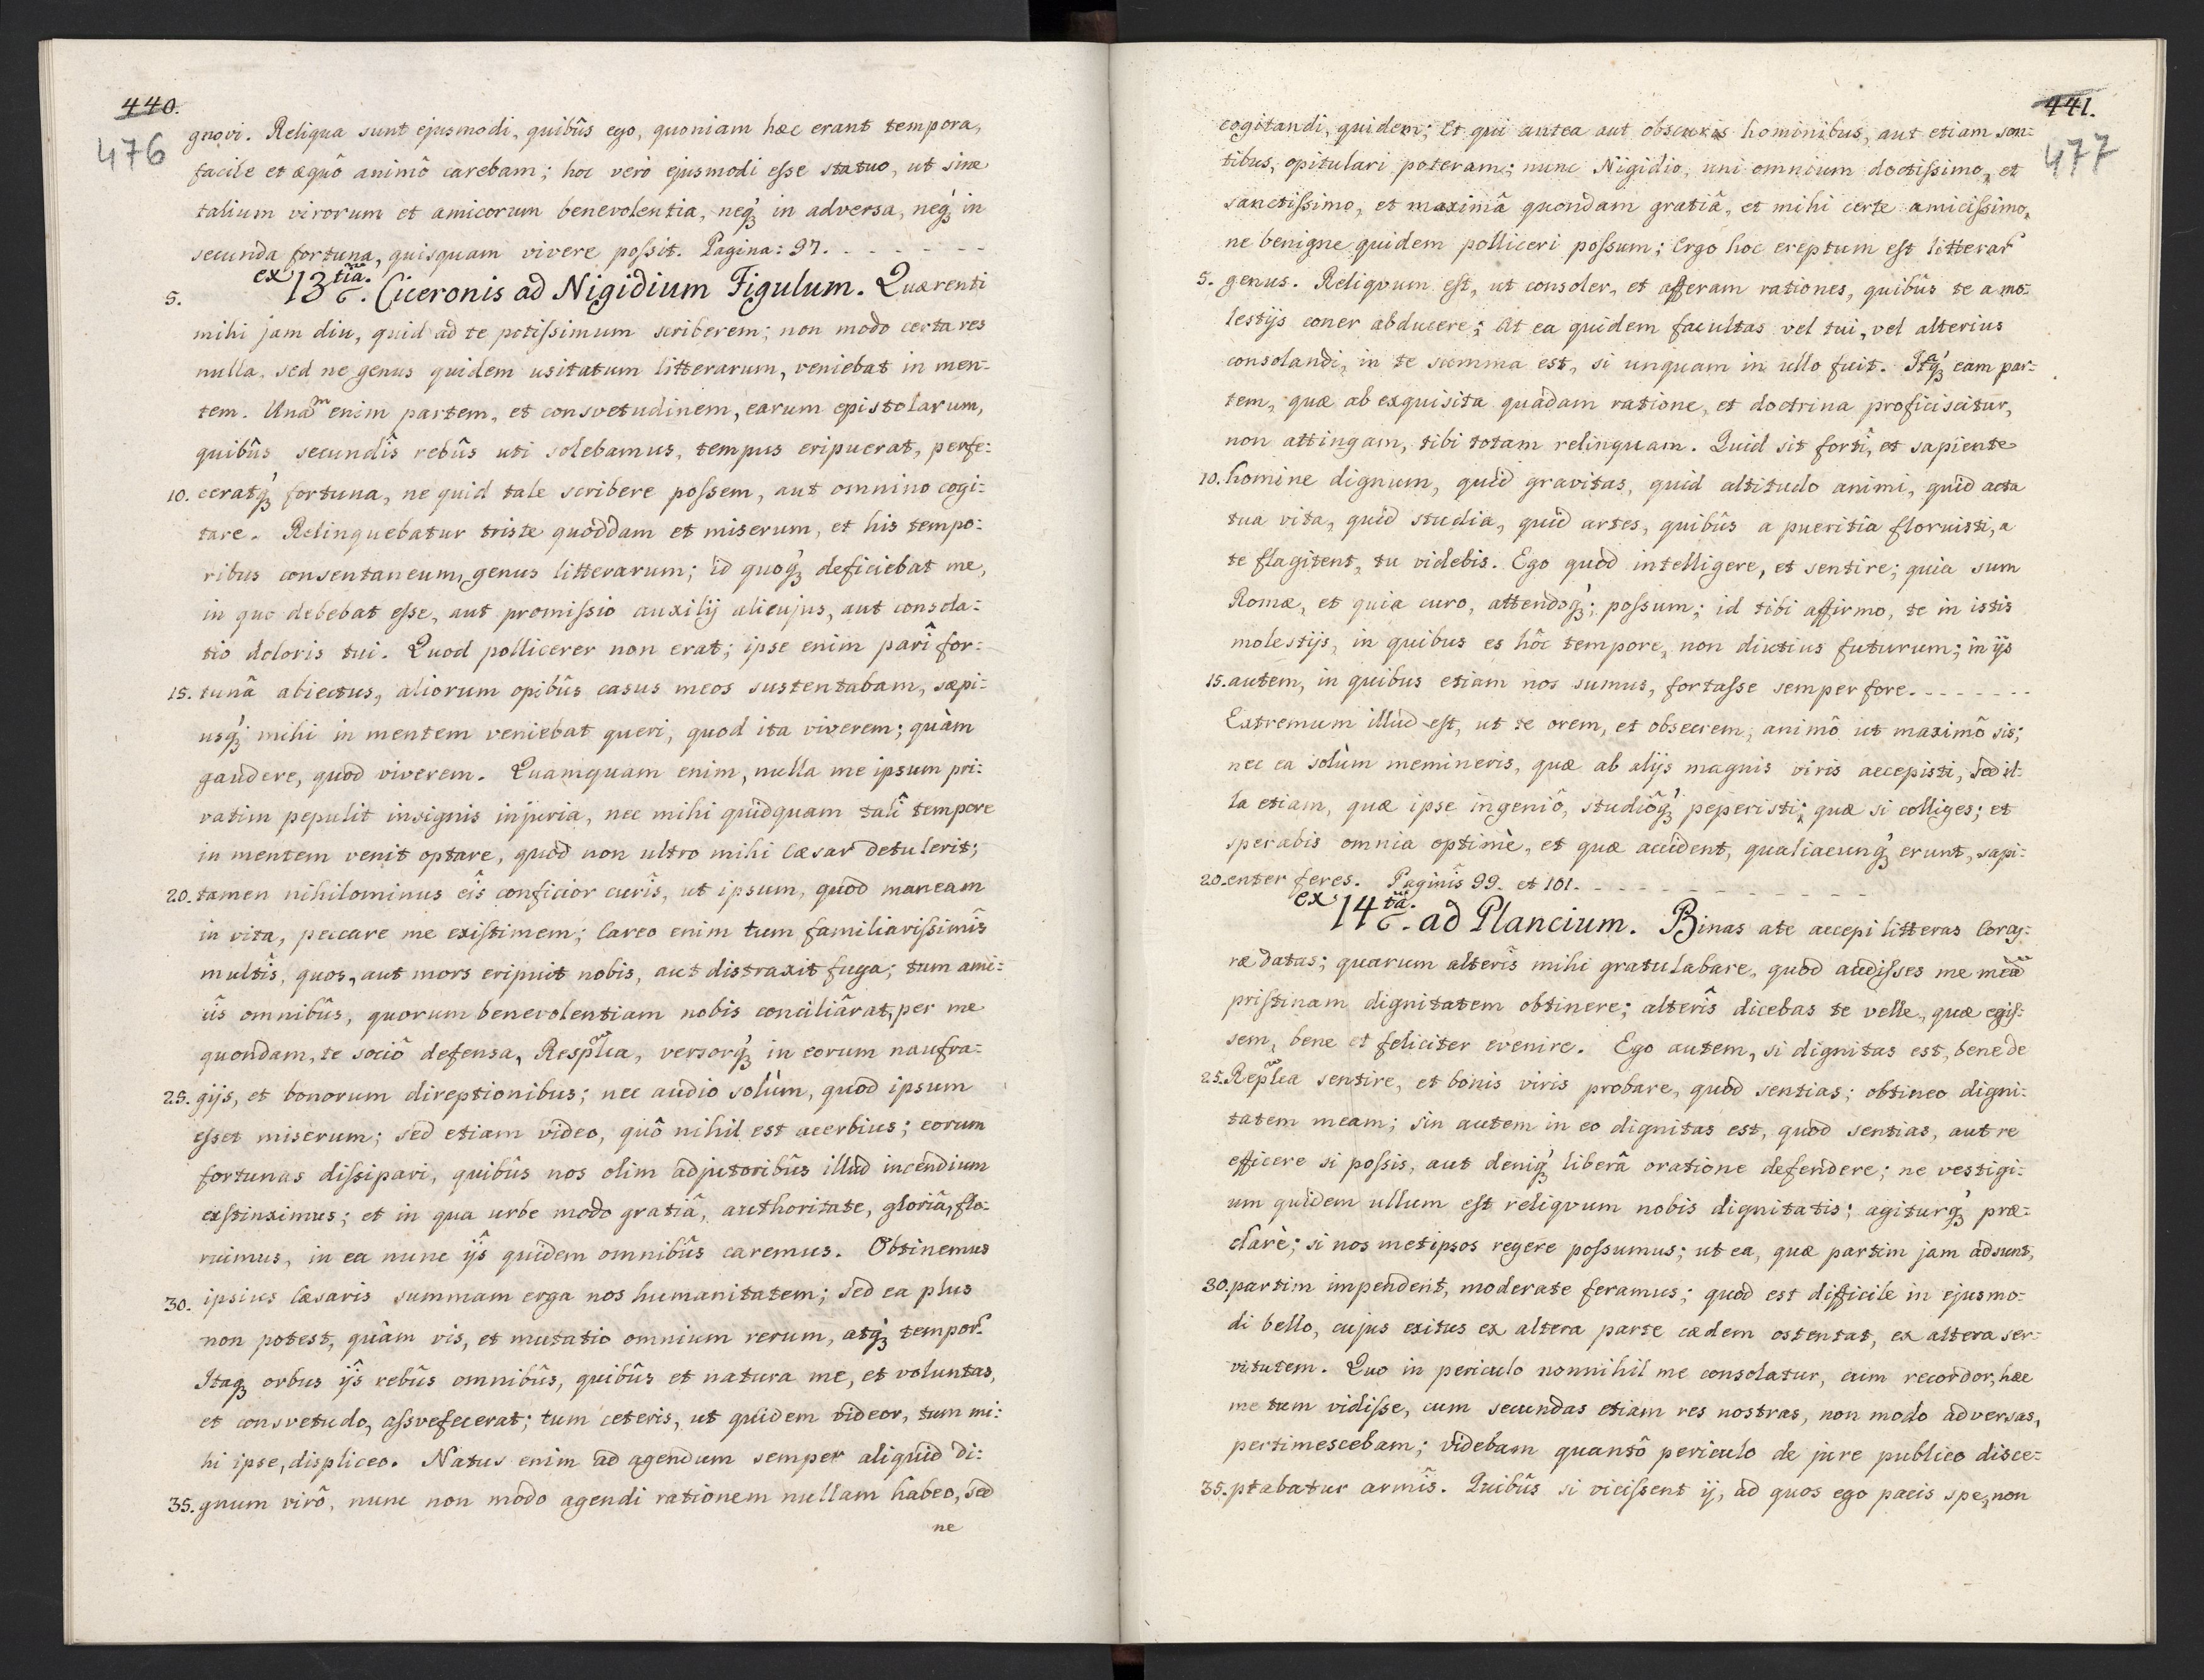 440.
476
gnovi. Reliqua sunt ejusmodi, quibûs ego, quoniam hæc erant tempora,
facile et æquô animô carebam; hoc verò ejusmodi eſse statuo, ut sine
talium virorum et amicorum benevolentia, neq́ꝫ in adversa, neq́ꝫ in
secunda fortuna, quisquam vivere poſsit. Pagina: 97. - - - - - - -
5. ex 13tiâ. Ciceronis ad Nigidium Figulum. Quærenti
mihi jam diu, quid ad te potiſsimum scriberem; non modo certa res
nulla, sed ne genus quidem usitatum litterarum, veniebat in men-
tem. Unam enim partem, et consvetudinem, earum epistolarum,
quibûs secundîs rebûs uti solebamus, tempus eripuerat, perfe:
10. ceratq́ꝫ fortuna, ne quid tale scribere poſsem, aut omnino cogi:
tare. Relinquebatur triste quoddam et miserum, et his tempo:
ribus consentaneum, genus litterarum; id quoq́ꝫ deficiebat me,
in quo debebat eſse, aut promiſsio auxilij alicujus, aut consola:
tio doloris tui. Quod pollicerer non erat; ipse enim parî for:
15. tunâ abiectus, aliorum opibûs casus meos sustentabam, sæpi:
usq́ꝫ mihi in mentem veniebat queri, quod ita viverem; quàm
gaudere, quod viverem. Quamquam enim, nulla me ipsum pri:
vatim pepulit insignis injuria, nec mihi quidquam talî tempore
in mentem venit optare, quod non ultro mihi Cæsar detulerit;
20. tamen nihilominus eîs conficior curîs, ut ipsum, quod maneam
in vita, peccare me existimem; Careo enim tum familiariſsimîs
multîs, quos, aut mors eripuit nobis, aut distraxit fuga; tum ami:
cîs omnibûs, quorum benevolentiam nobis conciliârat, per me
quondam, te sociô defensa, Resplca, versorq́ꝫ in eorum naufra:
25. gijs, et bonorum direptionibus; nec audio solùm, quod ipsum
eſset miserum; sed etiam video, quô nihil est acerbius; eorum
fortunas diſsipari, quibûs nos olim adjutoribûs illud incendium
exstinximus; et in qua urbe modo gratiâ, authoritate, gloriâ, flo:
ruimus, in ea nunc ijs quidem omnibûs caremus. Obtinemus
30. ipsius Cæsaris summam erga nos humanitatem; sed ea plus
non potest, quàm vis, et mutatio omnium rerum, atq́ꝫ tempor.
Itaqꝫ orbus ijs rebûs omnibûs, quibûs et natura me, et voluntas,
et consvetudo, aſsvefecerat; tum ceteris, ut quidem videor, tum mi:
hi ipse, displiceo. Natus enim ad agendum semper aliquid di:
35. gnum virô, nunc non modo agendi rationem nullam habeo, sed
ne
441.
477
cogitandi, quidem; Et qui antea aut obscuris hominibus, aut etiam son:
tibus, opitulari poteram; nunc Nigidio, uni omnium doctiſsimo, et
sanctiſsimo, et maximâ quondam gratiâ, et mihi certe amiciſsimo,
ne benigne quidem polliceri poſsum; Ergo hoc ereptum est litterar
5. genus. Reliqvum est, ut consoler, et afferam rationes, quibûs te a mo:
lestijs coner abducere; At ea quidem facultas vel tui, vel alterius
consolandi, in te summa est, si unquam in ullo fuit. Itq́ꝫ eam par:
tem, quæ ab exquisita quadam ratione, et doctrina proficiscitur,
non attingam, tibi totam relinquam. Quid sit fortî, et sapiente
10. homine dignum, quid gravitas, quid altitudo animi, quid acta
tua vita, quid studia, quid artes, quibûs a pueritia floruisti, a
te flagitent, tu videbis. Ego quod intelligere, et sentire; quia sum
Romæ, et quia curo, attendoq́ꝫ; poſsum; id tibi affirmo, te in istis
molestijs, in quibus es hôc tempore, non diutius futurum; in ijs
15. autem, in quibus etiam nos sumus, fortaſse semper fore. - - - - - - -
Extremum illud est, ut te orem, et obsecrem, animô ut maximô sis;
nec ea solùm memineris, quæ ab alijs magnis viris accepisti, sed il:
la etiam, quæ ipse ingeniô, studiôq́ꝫ peperisti; quæ si colliges; et
sperabis omnia optimè, et quæ accident, qualiacunq́ꝫ erunt, sapi:
20. enter feres. Paginîs 99. et 101. - - - - - - - - - - -
ex 14tâ. ad Plancium. Binas ate accepi litteras Corcy:
ræ datas; quarum alterîs mihi gratulabare, quod audiſses me meã
pristinam dignitatem obtinere; alterîs dicebas te velle, quæ egiſ:
sem, bene et feliciter evenire. Ego autem, si dignitas est, bene de
25. Replca sentire, et bonis viris probare, quod sentias; obtineo digni:
tatem meam; sin autem in eo dignitas est, quod sentias, aut re
efficere si poſsis, aut deniq́ꝫ liberâ oratione defendere; ne vestigi:
um quidem ullum est reliqvum nobis dignitatis; agiturq́ꝫ præ:
clarè; si nos metipsos regere poſsumus; ut ea, quæ partim jam adsunt,
30. partim impendent, moderate feramus; quod est difficile in ejusmo:
di bello, cujus exitus ex altera parte cædem ostentat, ex altera ser:
vitutem. Quo in periculo nonnihil me consolatur, cum recordor, hæc
me tum vidiſse, cum secundas etiam res nostras, non modo adversas,
pertimescebam; videbam quantô periculo de jure publico disce:
35. ptabatur armîs. Quibûs si viciſsent ij, ad quos ego pacis spe, non